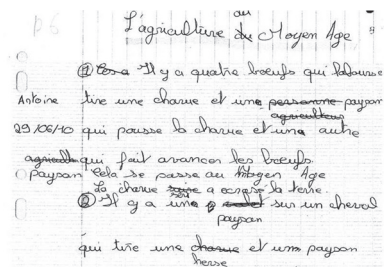 P6
au
L'agriculture du Moyen Age
① Il y a quatre bœufs qui labourse
Antoine tire une charue et une personne paysan
agriculteur
29/06/10 qui pousse la charue et une autre
agricult qui fait avancer les bœufs.
paysan Cela se passe au Moyen Age
La charue sert a ecrase la terre.
② Il y a une sur un cheval
paysan
qui tire une charue et un paysan
herse